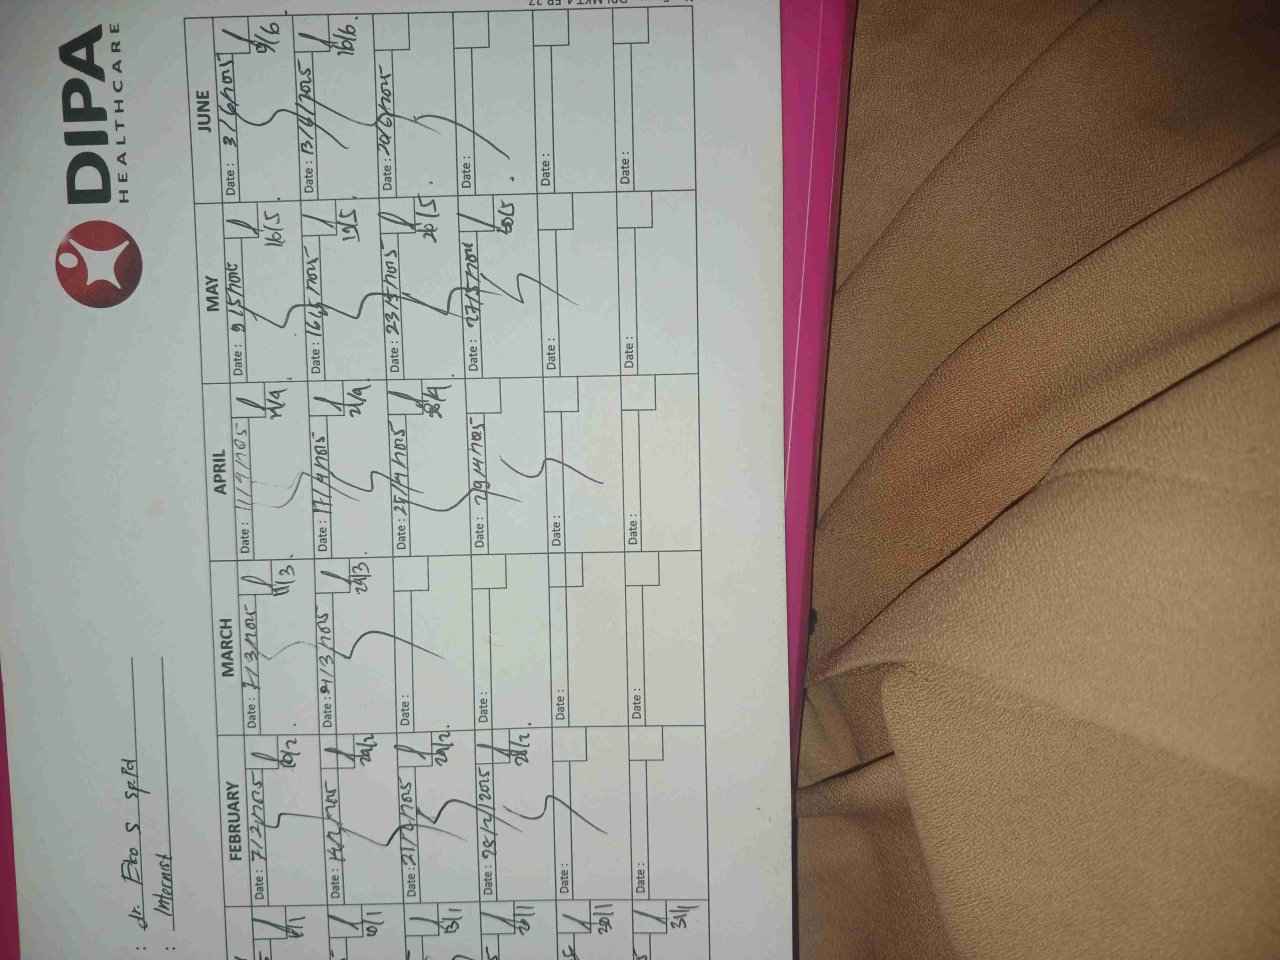 DIPA
HEALTHCARE
: dr. Eko S SpPd
: Internist
FEBRUARY MARCH APRIL MAY JUNE
Date : 7/2/2025
10/2
Date : 7/3/2025
11/3
Date : 11/4/2025
Date : 9/5/2025
16/5
Date : 3/6/2025
9/6
Date : 14/2/2025
20/2
Date : 21/3/2025
24/3
Date : 17/4/2025
21/4
Date : 16/5/2025
19/5
Date : 13/6/2025
16/6
Date : 21/2/2025
24/2
Date :
Date : 25/4/2025
28/4
Date : 23/5/2025
26/5
Date : 20/6/2025
Date : 28/2/2025
28/2
Date :
Date : 29/4/2025
Date : 27/5/2025
30/5
Date :
Date :
Date :
Date :
Date :
Date :
Date :
Date :
Date :
Date :
Date :
6/1
10/1
13/1
30/1
31/1